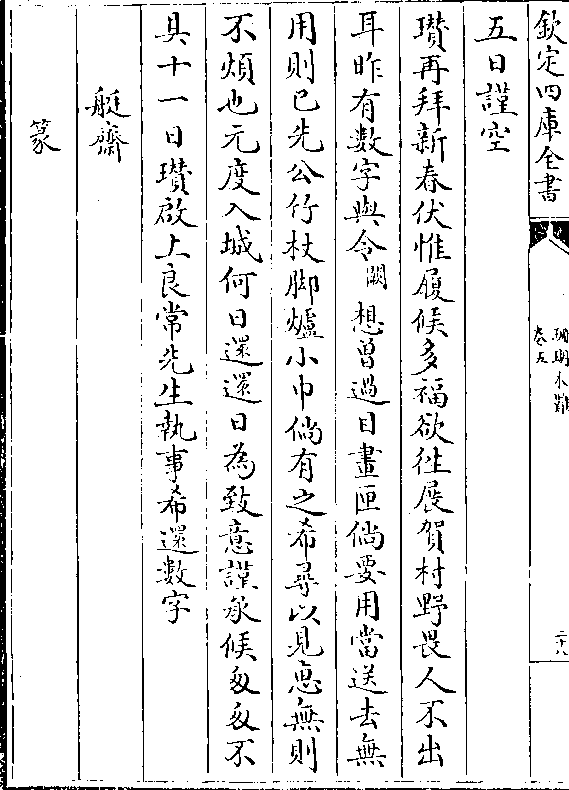 欽定四庫全書
珊瑚木難
卷五
二十八
五日謹空
瓚再拜新春伏惟履候多福欲徃展賀村野畏人不出
耳昨有數字與令闕想曽過目畫匣倘要用當送去無
用則已先公竹杖脚爐小巾倘有之希尋以見惠無則
不煩也元度入城何日還還日為致意謹承候匆匆不
具十一日瓚啟上良常先生執事希還數字
艇齋
篆